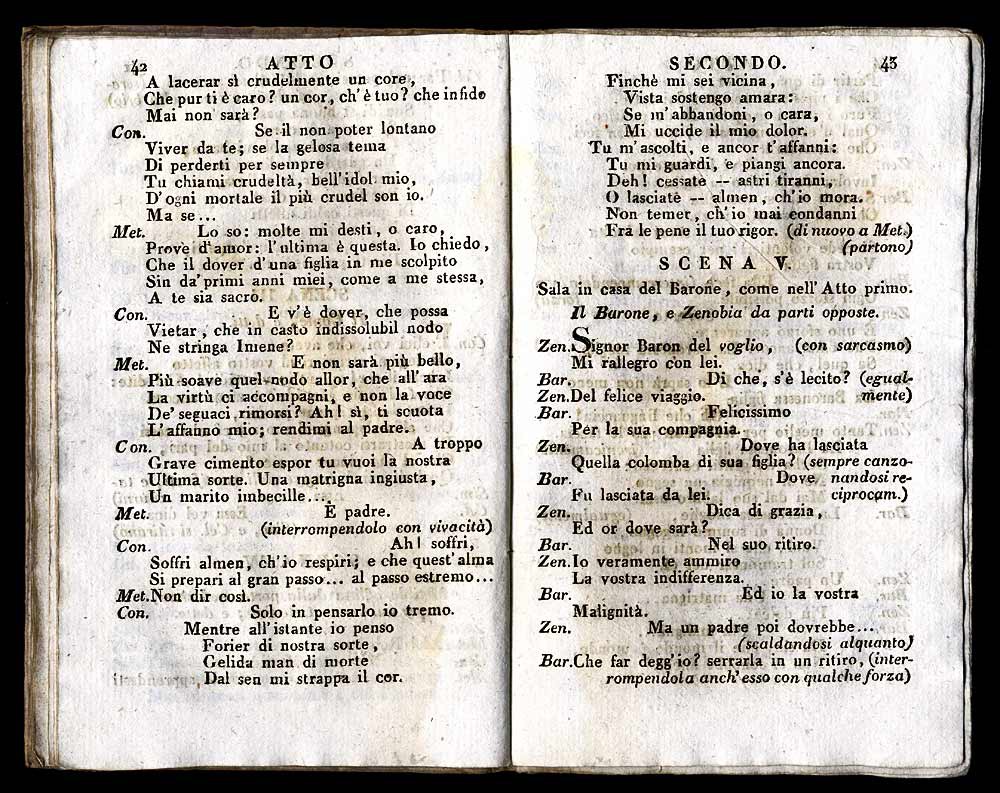 42 ATTO
A lacerar sì crudelmente un core,
Che pur ti è caro? un cor, ch'è tuo? che infido
Mai non sarà?
Con. Se il non poter lontano
Viver da te; se la gelosa tema
Di perderti per sempre
Tu chiami crudeltà, bell'idol mio,
D'ogni mortale il più crudel son io.
Ma se...
Met. Lo so: molte mi desti, o caro,
Prove d'amor: l'ultima è questa. Io chiedo,
Che il dover d'una figlia in me scolpito
Sin da'primi anni miei, come a me stessa,
A te sia sacro.
Con. E v'è dover, che possa
Vietar, che in casto indissolubil nodo
Ne stringa Imene?
Met. E non sarà più bello,
Più soave quel nodo allor, che all'ara
La virtù ci accompagni, e non la voce
De'seguaci rimorsi? Ah! sì, ti scuota
L'affanno mio; rendimi al padre.
Con. A troppo
Grave cimento espor tu vuoi la nostra
Ultima sorte. Una matrigna ingiusta,
Un marito imbecille...
Met. È padre.
(interrompendolo con vivacità)
Con. Ah! soffri,
Soffri almen, ch'io respiri; e che quest'alma
Si prepari al gran passo... al passo estremo...
Met. Non dir così.
Con. Solo in pensarlo io tremo.
Mentre all'istante io penso
Forier di nostra sorte,
Gelida man di morte
Dal sen mi strappa il cor.
SECONDO. 43
Finchè mi sei vicina,
Vista sostengo amara:
Se m'abbandoni, o cara,
Mi uccide il mio dolor.
Tu m'ascolti, e ancor t'affanni:
Tu mi guardi, e piangi ancora.
Deh! cessate -- astri tiranni,
O lasciate -- almen, ch'io mora.
Non temer, ch'io mai condanni
Fra le pene il tuo rigor. (di nuovo a Met.)
(partono)
SCENA V.
Sala in casa del Barone, come nell'Atto primo.
Il Barone, e Zenobia da parti opposte.
Zen. Signor Baron del voglio, (con sarcasmo)
Mi rallegro con lei.
Bar. Di che, s'è lecito? (egual-
Zen. Del felice viaggio. mente)
Bar. Felicissimo
Per la sua compagnia.
Zen. Dove ha lasciata
Quella colomba di sua figlia? (sempre canzo-
Bar. Dove nandosi re-
Fu lasciata da lei. ciprocam.)
Zen. Dica di grazia,
Ed or dove sarà?
Bar. Nel suo ritiro.
Zen. Io veramente ammiro
La vostra indifferenza.
Bar. Ed io la vostra
Malignità.
Zen. Ma un padre poi dovrebbe...
(scaldandosi alquanto)
Bar. Che far degg'io? serrarla in un ritiro, (inter-
rompendola anch'esso con qualche forza)